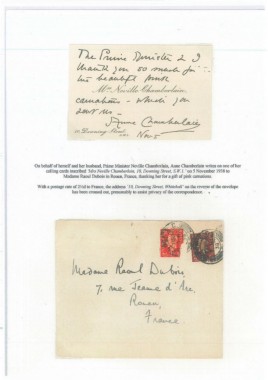 The Prime Minister & I
thank you so much for
his beautiful pink
Mrs Neville Chamberlain.
carnations – which you
sent us –
Anne Chamberlain
10 Downing Street
Nov 5
On behalf of herself and her husband, Prime Minister Neville Chamberlain, Anne Chamberlain writes on one of her
calling cards inscribed: "Mrs Neville Chamberlain. 10, Downing Street, S.W.1." on 5 November 1938 to
Madame Raoul Dubois in Rouen, France, thanking her for a gift of pink carnations.
With a postage rate of 2½d to France, the address "10, Downing Street, Whitehall" on the reverse of the envelope
has been crossed out, presumably to assist privacy of the correspondence.
Madame Raoul Dubois
7, rue Jeanne d'Arc
Rouen,
France